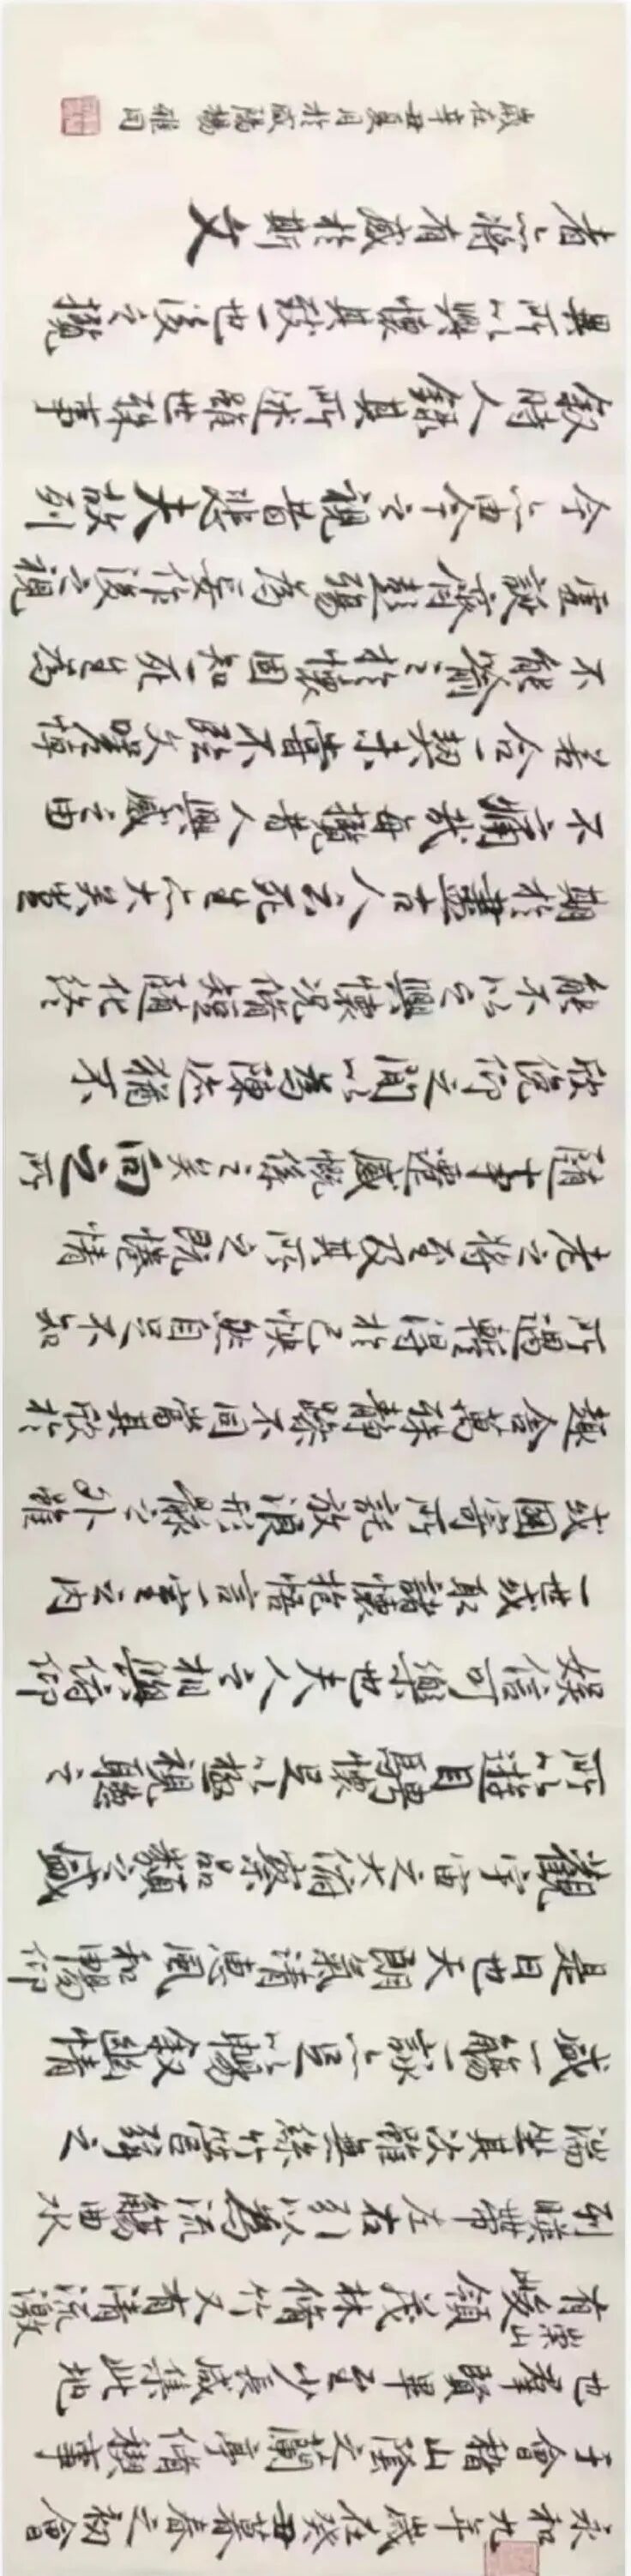 永和九年歲在癸丑暮春之初會
于會稽山陰之蘭亭脩禊事
也羣賢畢至少長咸集此地
有崇山峻領茂林脩竹又有清流激
列暎帶左右引以為流觴曲水
湍坐其次雖無絲竹管弦之
盛一觴一詠亦足以暢叙幽情
是日也天朗氣清惠風和暢仰
觀宇宙之大俯察品類之盛
所以遊目騁懷足以極視聽之
娛信可樂也夫人之相與俯仰
一世或取諸懷抱悟言一室之內
或因寄所託放浪形骸之外雖
趣舍萬殊靜躁不同當其欣於
所遇蹔得於己快然自足不知
老之將至及其所之既惓情
隨事遷感慨係之矣向之所
欣俛仰之閒以為陳迹猶不
能不以之興懷況脩短隨化終
期於盡古人云死生亦大矣豈
不痛哉每攬昔人興感之由
若合一契未嘗不臨文嗟悼
不能喻之於懷固知一死生為
虛誕齊彭殤為妄作後之視
今亦由今之視昔悲夫故列
叙時人錄其所述雖世殊事
異所以興懷其致一也後之攬
者亦將有感於斯文
歲在辛丑夏月於咸陽楊雅